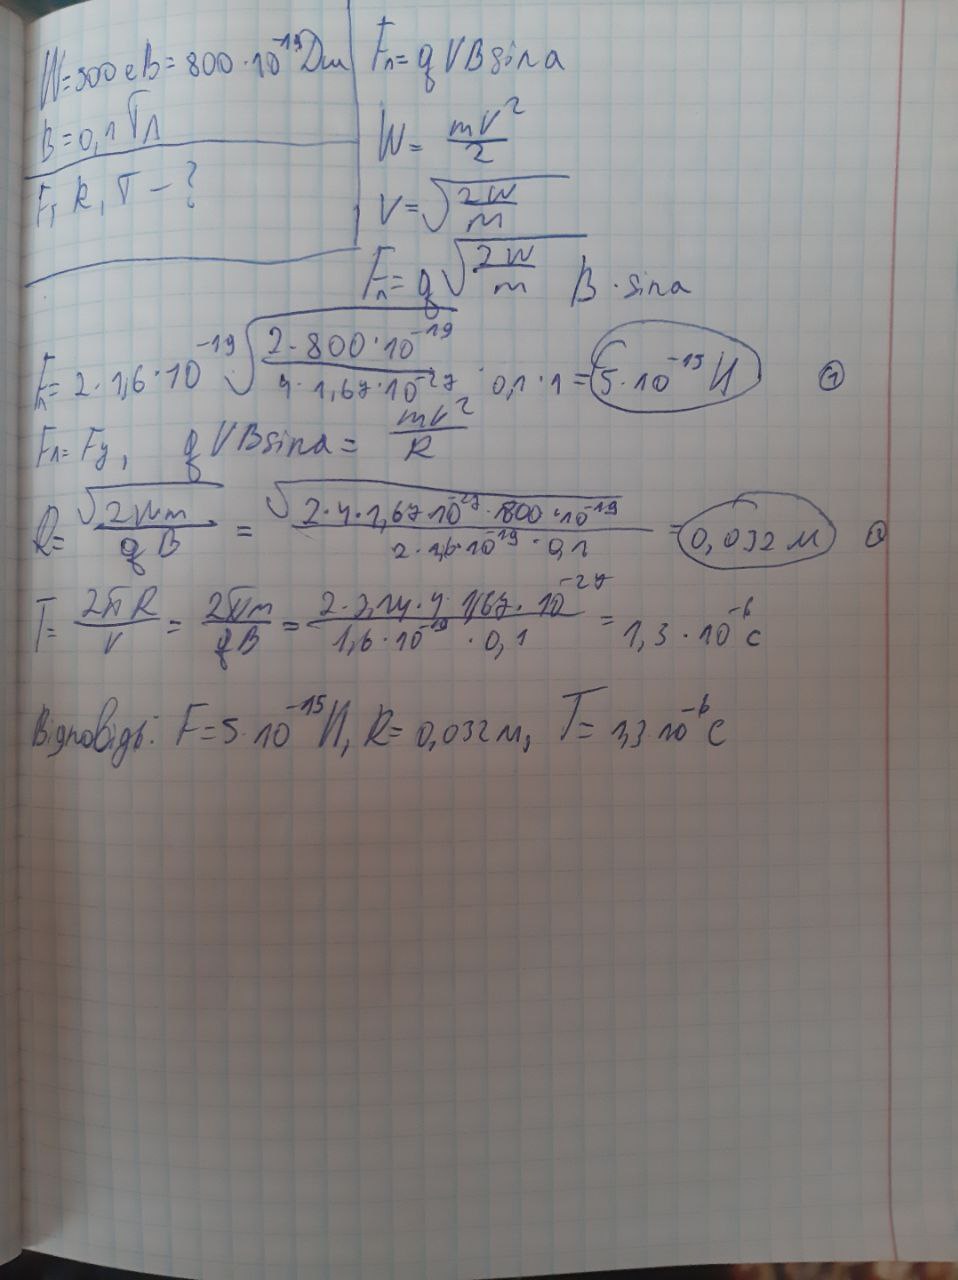 W=500 eB=800·10⁻¹⁹Дж
B=0,1 Тл
F, R, T – ?
Fл= qVBsina
W= mV²/2
V=√(2W/m)
Fл= q√(2W/m) B·sina
Fл= 2·1,6·10⁻¹⁹√(2·800·10⁻¹⁹/4·1,67·10⁻²⁷)·0,1·1=5·10⁻¹⁵Н ①
Fл= Fy, qVBsina= mv²/R
R= √(2Wm)/qB = √(2·4·1,67·10⁻²⁷·800·10⁻¹⁹)/2·1,6·10⁻¹⁹·0,1 =0,032 м
T= 2πR/V = 2πm/qB = 2·3,14·4·1,67·10⁻²⁷/1,6·10⁻¹⁹·0,1 = 1,3·10⁻⁶с
Відповідь: F=5·10⁻¹⁵Н, R=0,032м, T= 1,3·10⁻⁶с